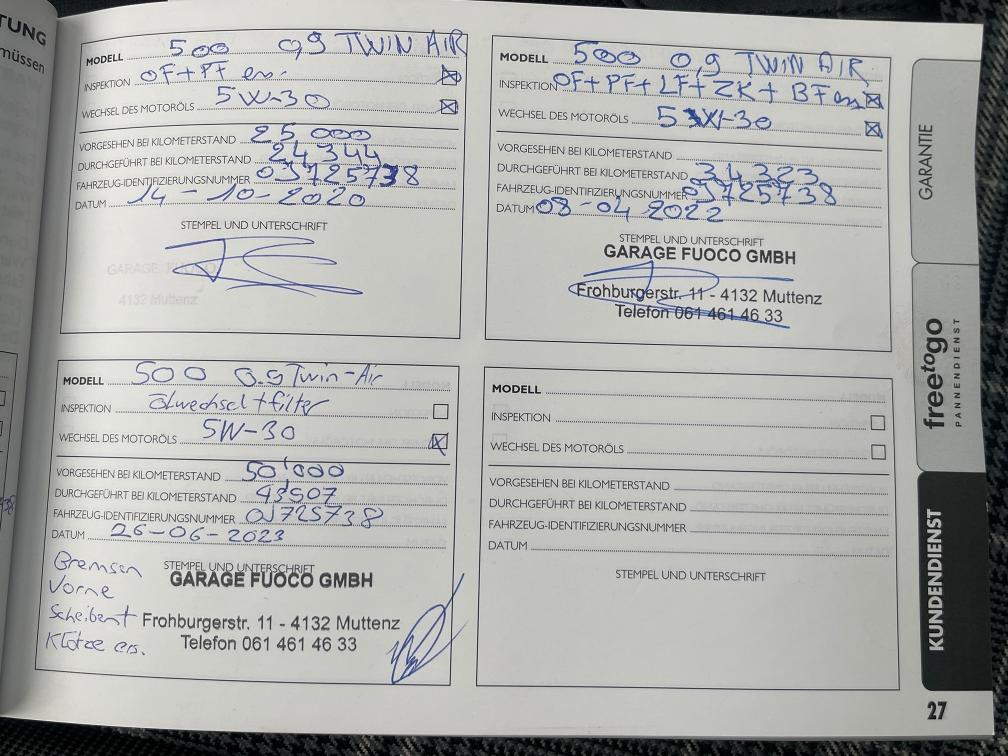 TUNG
müssen
MODELL 500 0,9 TWIN AIR
INSPEKTION OF + PF ers.
WECHSEL DES MOTORÖLS 5W-30
VORGESEHEN BEI KILOMETERSTAND 25 000
DURCHGEFÜHRT BEI KILOMETERSTAND 24 344
FAHRZEUG-IDENTIFIZIERUNGSNUMMER 0J725738
DATUM 14-10-2020
STEMPEL UND UNTERSCHRIFT
GARAGE FUOCO
4132 Muttenz
MODELL 500 0,9 TWIN AIR
INSPEKTION OF + PF + LF + ZK + BF ers
WECHSEL DES MOTORÖLS 5W-30
VORGESEHEN BEI KILOMETERSTAND
DURCHGEFÜHRT BEI KILOMETERSTAND 34 323
FAHRZEUG-IDENTIFIZIERUNGSNUMMER 0J725738
DATUM 08-04 2022
STEMPEL UND UNTERSCHRIFT
GARAGE FUOCO GMBH
Frohburgerstr. 11 - 4132 Muttenz
Telefon 061 461 46 33
MODELL 500 0.9 Twin-Air
INSPEKTION Ölwechsel + filter
WECHSEL DES MOTORÖLS 5W-30
VORGESEHEN BEI KILOMETERSTAND 50'000
DURCHGEFÜHRT BEI KILOMETERSTAND 43907
FAHRZEUG-IDENTIFIZIERUNGSNUMMER 0J725738
DATUM 26-06-2023
STEMPEL UND UNTERSCHRIFT
GARAGE FUOCO GMBH
Frohburgerstr. 11 - 4132 Muttenz
Telefon 061 461 46 33
Bremsen
Vorne
Scheiben+
Klötze ers.
MODELL
INSPEKTION
WECHSEL DES MOTORÖLS
VORGESEHEN BEI KILOMETERSTAND
DURCHGEFÜHRT BEI KILOMETERSTAND
FAHRZEUG-IDENTIFIZIERUNGSNUMMER
DATUM
STEMPEL UND UNTERSCHRIFT
GARANTIE
freetogo
PANNENDIENST
KUNDENDIENST
27